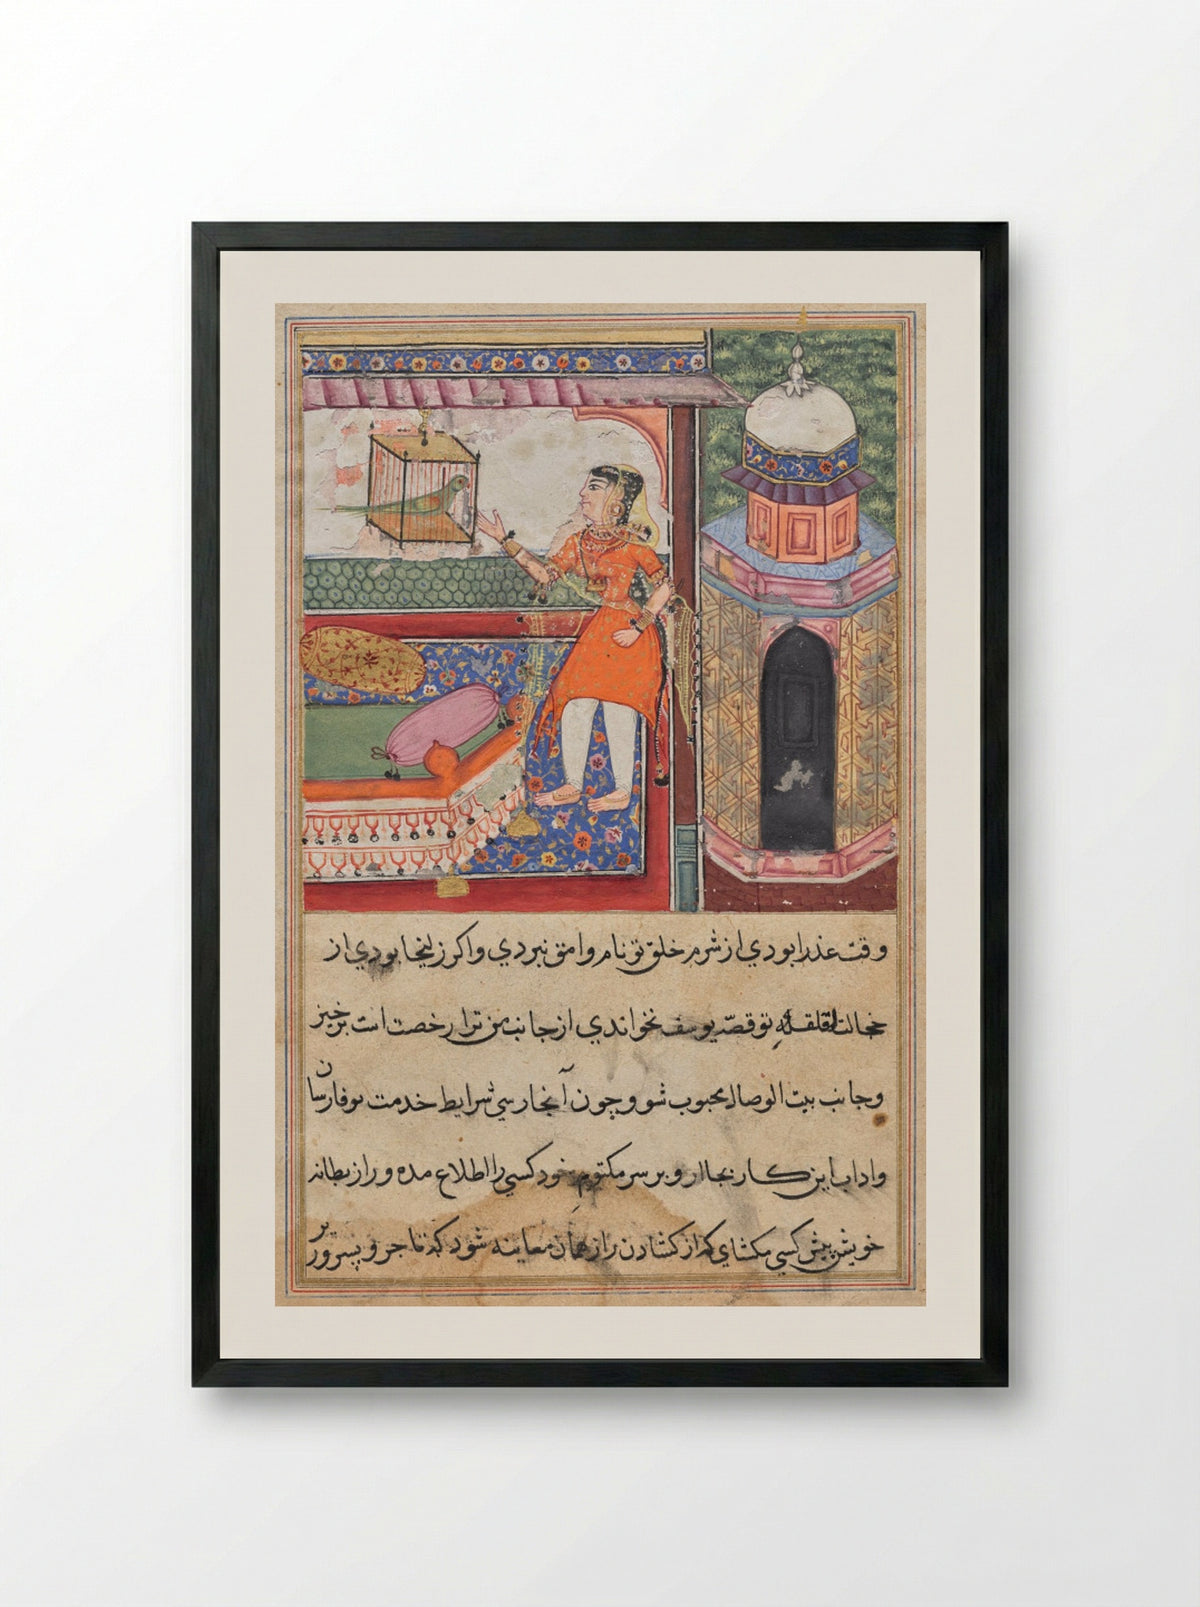 وقت عذرا بودي از شرم خلق تو نام وامق نبردي واكر زليخا بودي از
خجالت قلقله تو قصّه يوسف نخواندي از جانب من ترا رخصت است برخيز
وجانب بيت الوصال محبوب شو وچون آنجا رسي شرايط خدمت بوفا رسان
واداب اين كار بجا ار و بر سر مكتوم خود كسي را اطلاع مده و راز بطانه
خويش پيش كسي مكشاي كه از كشادن راز همان معاينه شود كه تاجر و پسر و بر